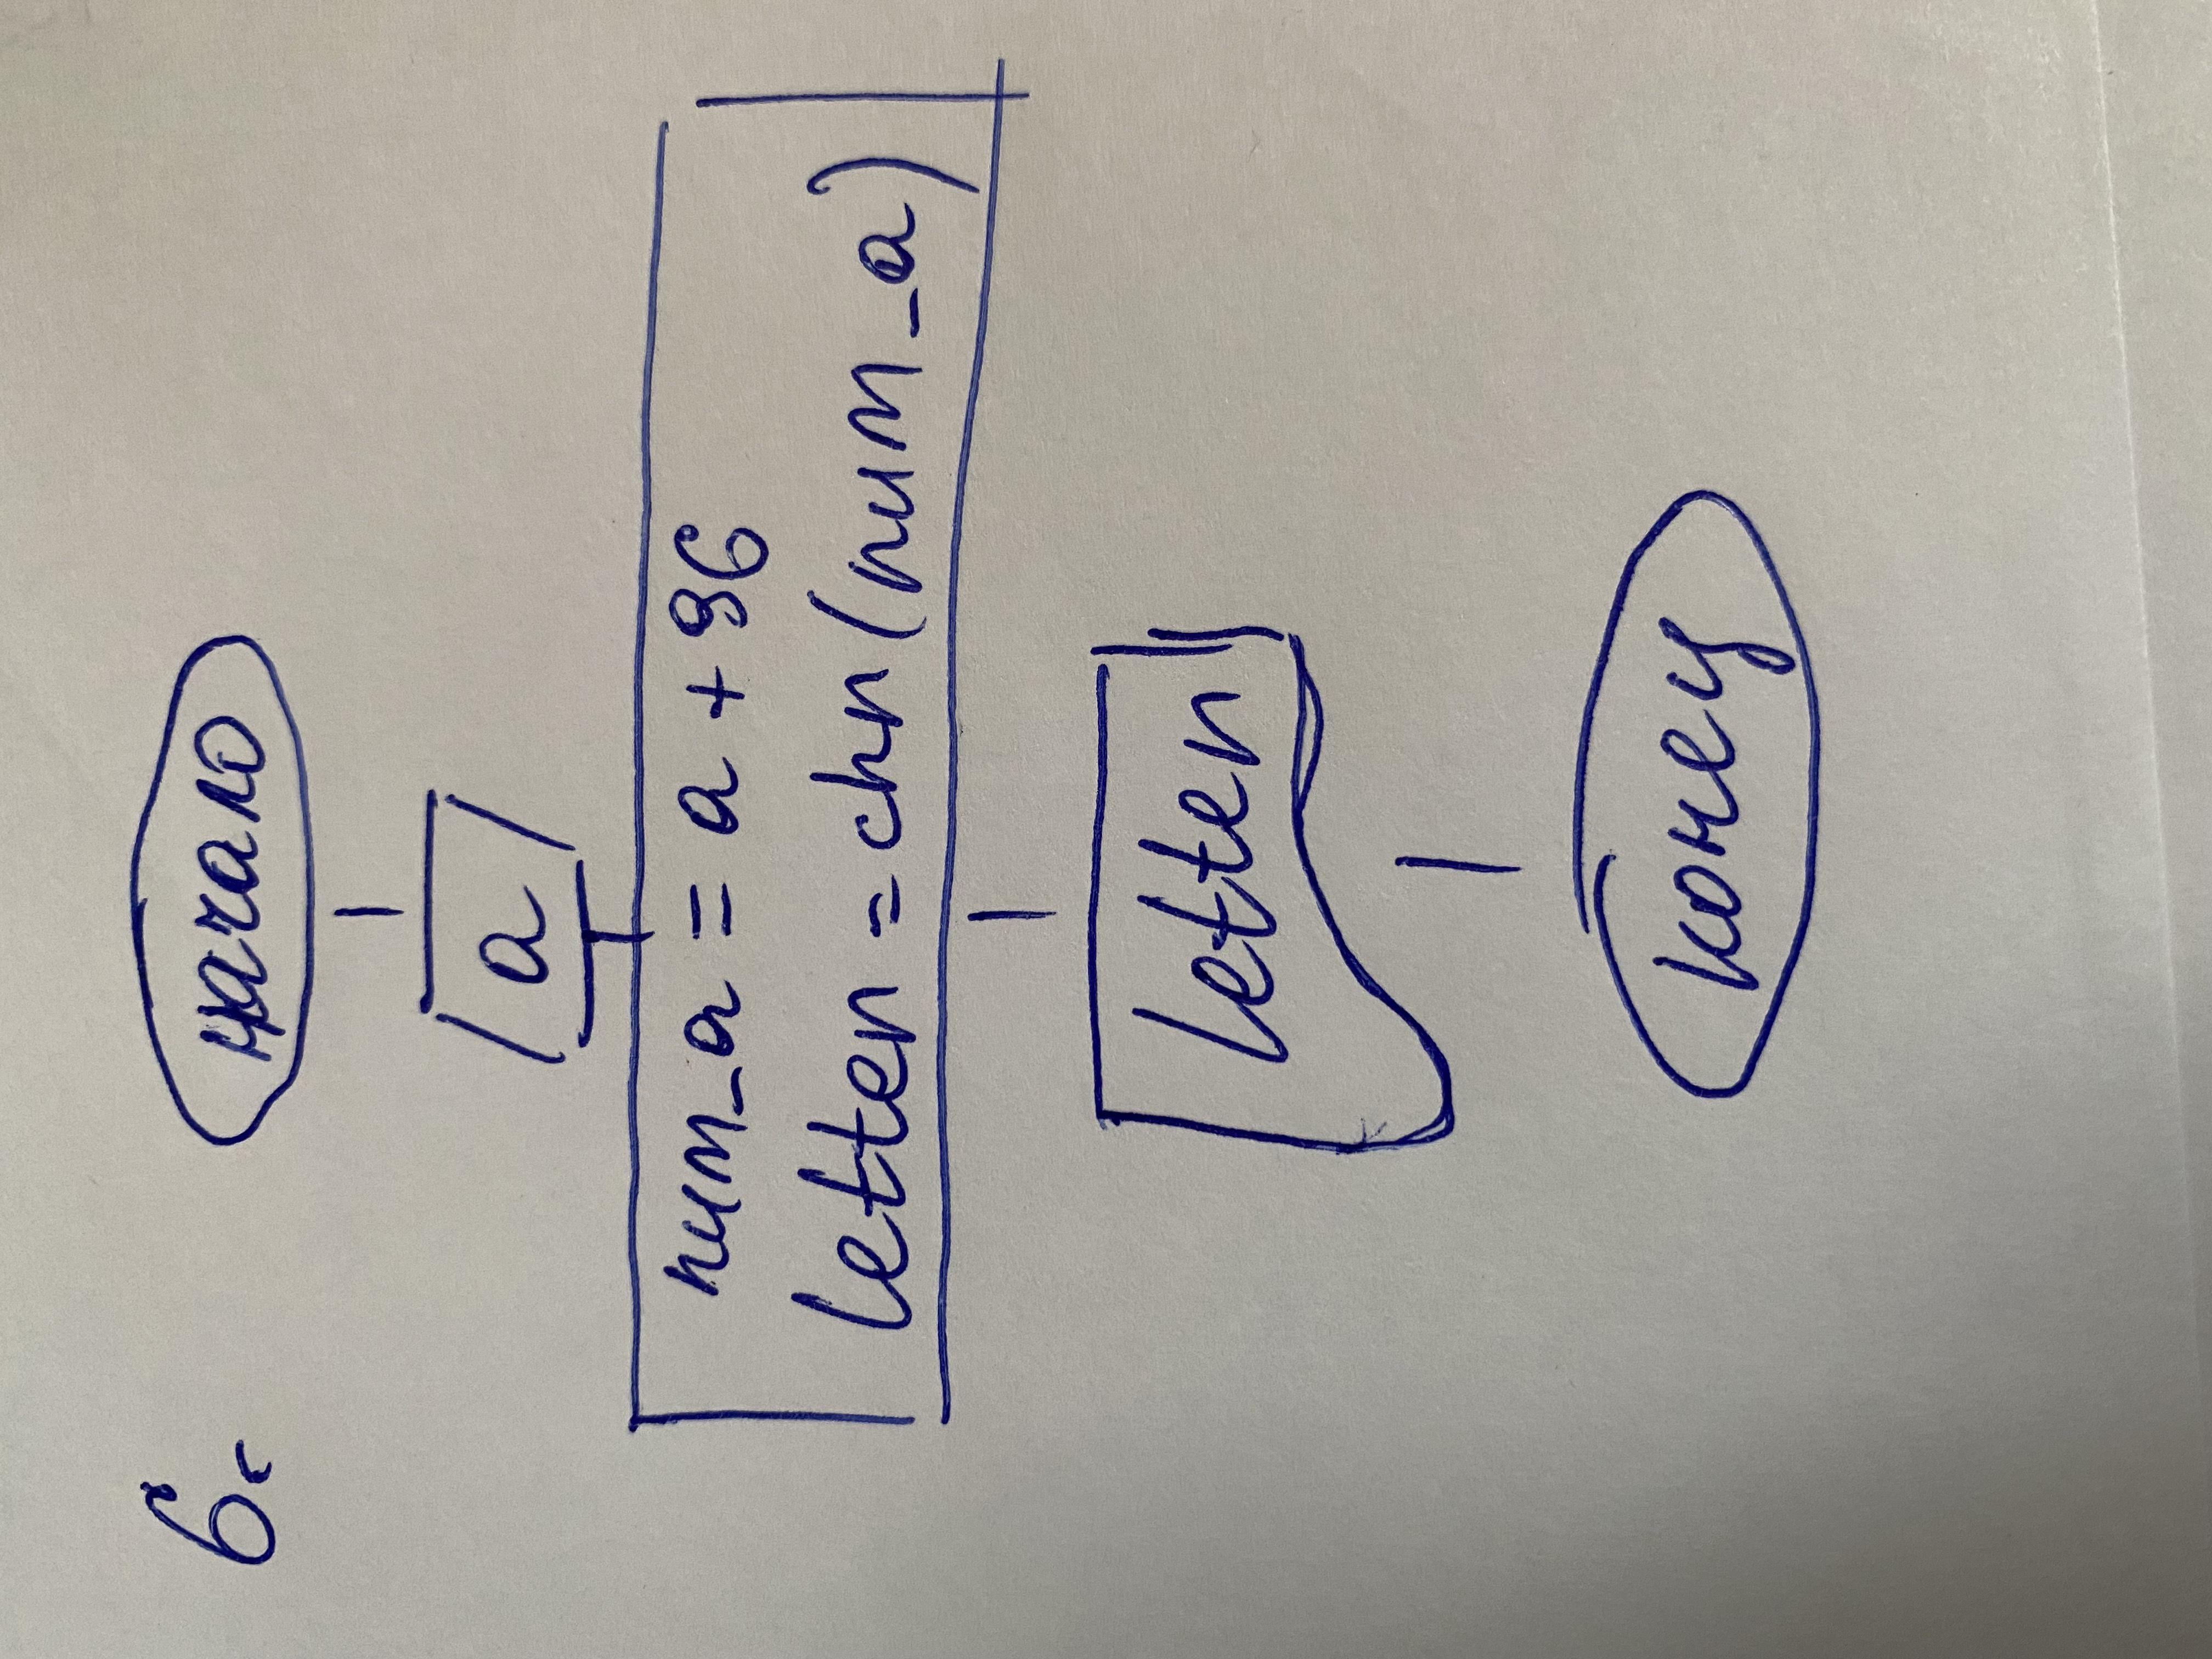 6.
начало
a
num_a = a + 96
letter = chr(num_a)
letter
конец